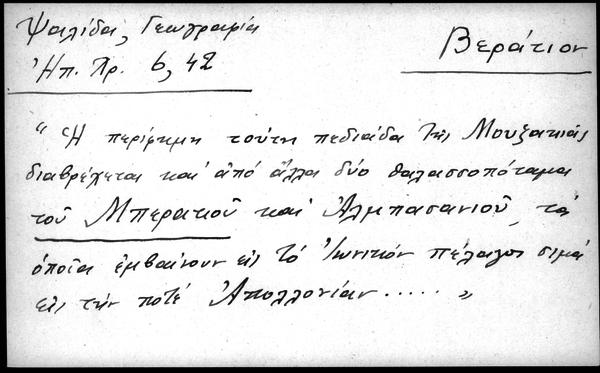 Ψαλίδα, Γεωγραφία
Ἠπ. Χρ. 6, 42
Βεράτιον
"Ἡ περίφημη τούτη πεδιάδα τῆς Μουζακιᾶς
διαβρέχεται καὶ ἀπό ἄλλα δύο θαλασσοπόταμα
τοῦ Μπερατιοῦ καὶ Ἀλμπασανιοῦ, τά
ὁποῖα ἐμβαίνουν εἰς τό Ἰωνικόν πέλαγος σιμά
εἰς τήν ποτέ Ἀπολλονίαν ..... "